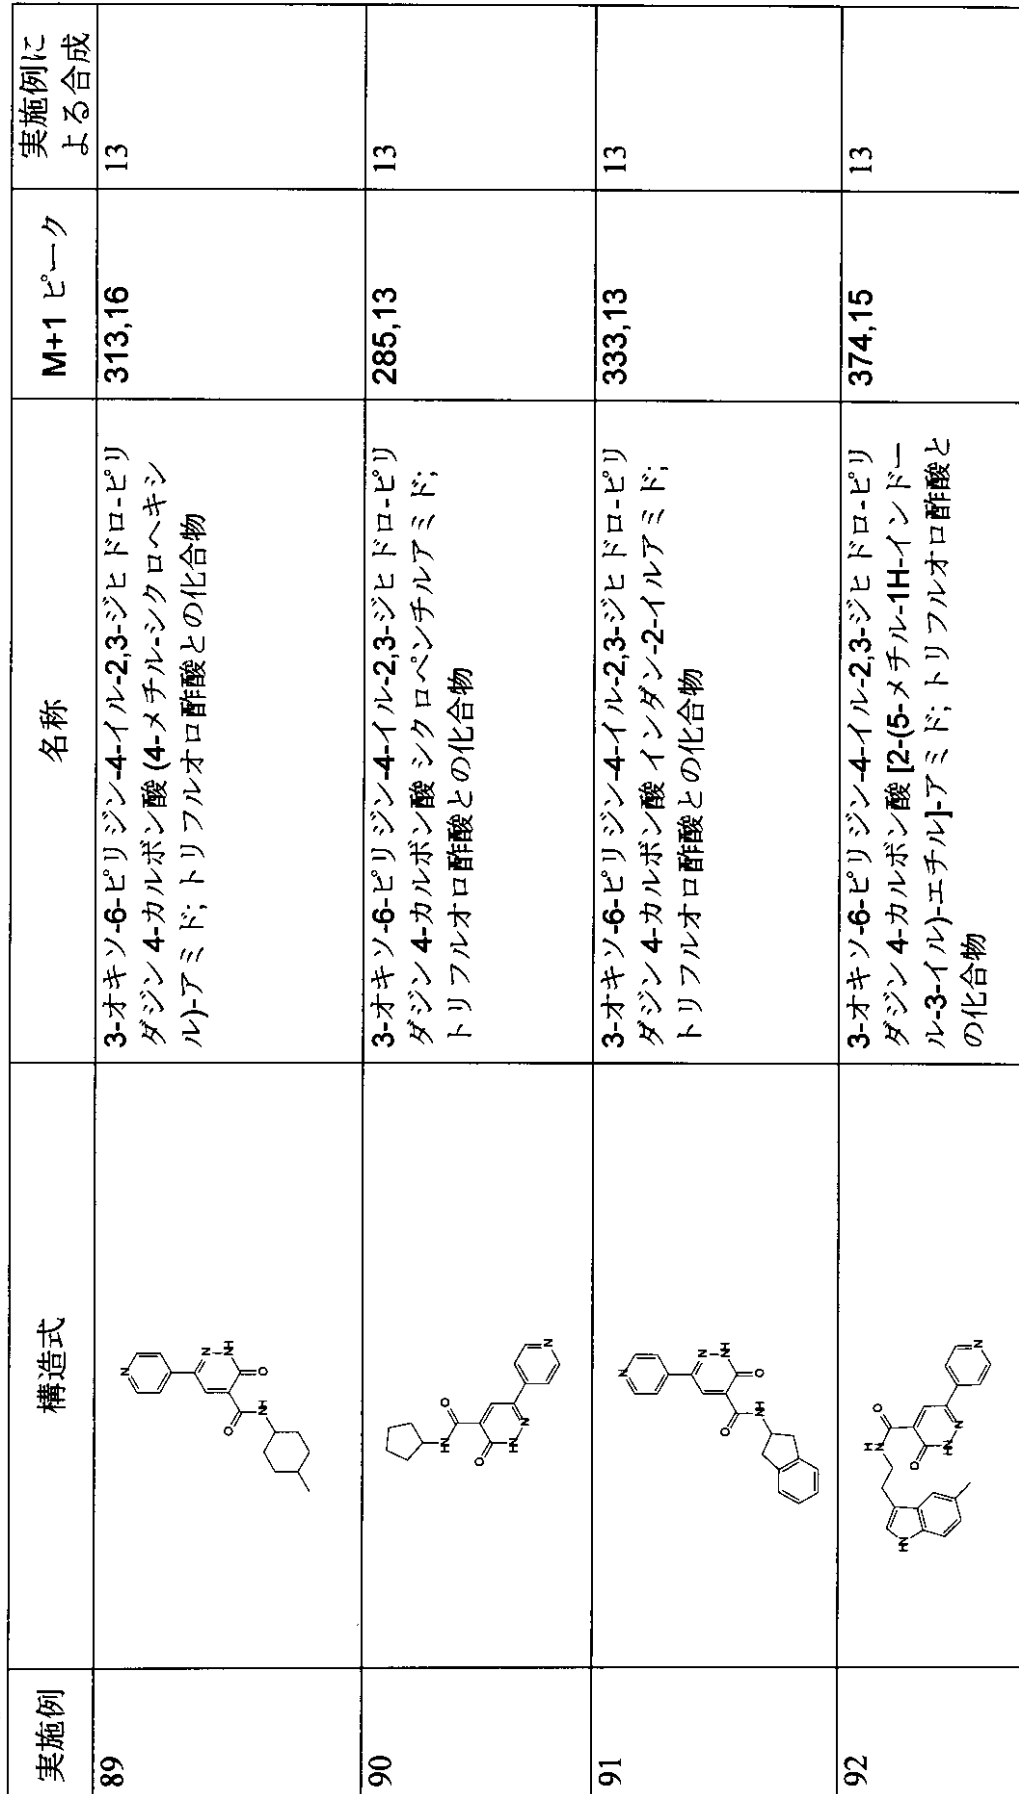 実施例
構造式
名称
M+1 ピーク
実施例に
よる合成
89
3-オキソ-6-ピリジン-4-イル-2,3-ジヒドロ-ピリ
ダジン 4-カルボン酸 (4-メチル-シクロヘキシ
ル)-アミド; トリフルオロ酢酸との化合物
313,16
13
90
3-オキソ-6-ピリジン-4-イル-2,3-ジヒドロ-ピリ
ダジン 4-カルボン酸 シクロペンチルアミド;
トリフルオロ酢酸との化合物
285,13
13
91
3-オキソ-6-ピリジン-4-イル-2,3-ジヒドロ-ピリ
ダジン 4-カルボン酸 インダン-2-イルアミド;
トリフルオロ酢酸との化合物
333,13
13
92
3-オキソ-6-ピリジン-4-イル-2,3-ジヒドロ-ピリ
ダジン 4-カルボン酸 [2-(5-メチル-1H-インドー
ル-3-イル)-エチル]-アミド; トリフルオロ酢酸と
の化合物
374,15
13